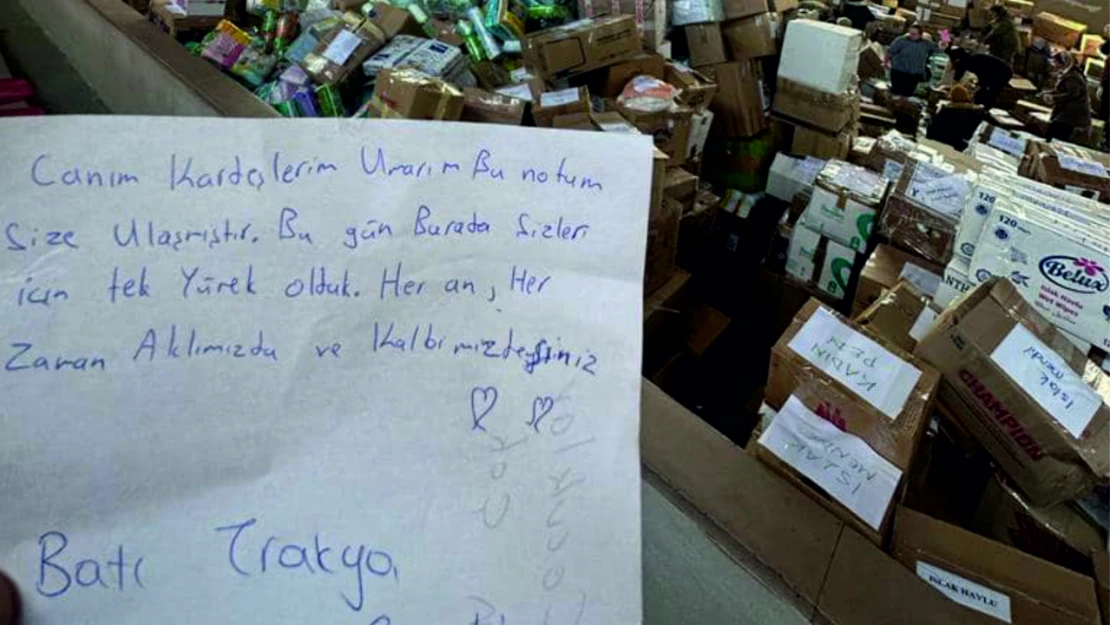 Canım Kardeşlerim Umarım Bu notum
Size Ulaşmıştır. Bu gün Burada Sizler
için tek Yürek olduk. Her an, Her
Zaman Aklımızda ve Kalbimizdesiniz
Batı Trakya
120
Belux
Islak Havlu
Wet Wipes
KADIN
PED
Islak
mendil
CHAMPION
ISLAK
MENDİL
ISLAK HAVLU